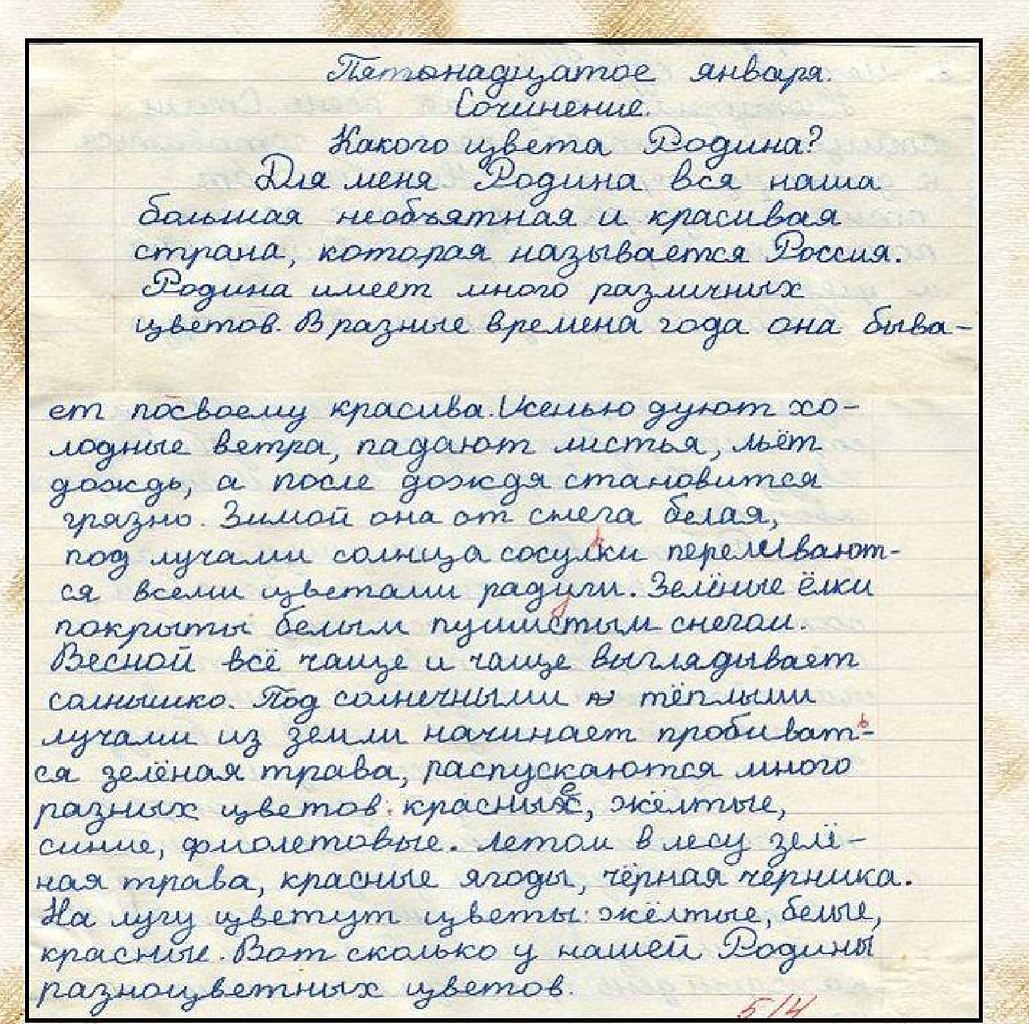 Пятонадцатое января.
Сочинение.
Какого цвета Родина?
Для меня Родина, вся наша
большая необъятная и красивая
страна, которая называется Россия.
Родина имеет много различных
цветов. В разные времена года она быва-
ет посвоему красива. Осенью дуют хо-
лодные ветра, падают листья, льёт
дождь, а после дождя становится
грязно. Зимой она от снега белая,
под лучами солнца сосульки переливают-
ся всеми цветами радуги. Зелёные ёлки
покрыты белым пушистым снегом.
Весной всё чаще и чаще выглядывает
солнышко. Под солнечными и тёплыми
лучами из земли начинает пробивать-
ся зелёная трава, распускаются много
разных цветов: красные, жёлтые,
синие, фиолетовые. Летом в лесу зелё-
ная трава, красные ягоды, чёрная черника.
На лугу цветут цветы: жёлтые, белые,
красные. Вот сколько у нашей Родины
разноцветных цветов.
5/4